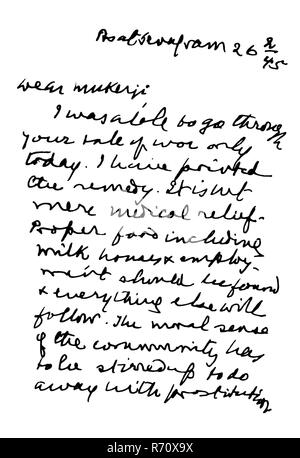 As at Sevagram 26 8/45
Dear Mukerji
I was able to go through
your tale of woe only
today. I have pointed
the remedy. It is not
mere medical relief.
Proper food including
milk honey & employ-
ment should be found
& everything else will
follow. The moral sense
of the community has
to be stirred up to do
away with prostitution
alamy
Image ID: R70X9X
www.alamy.com